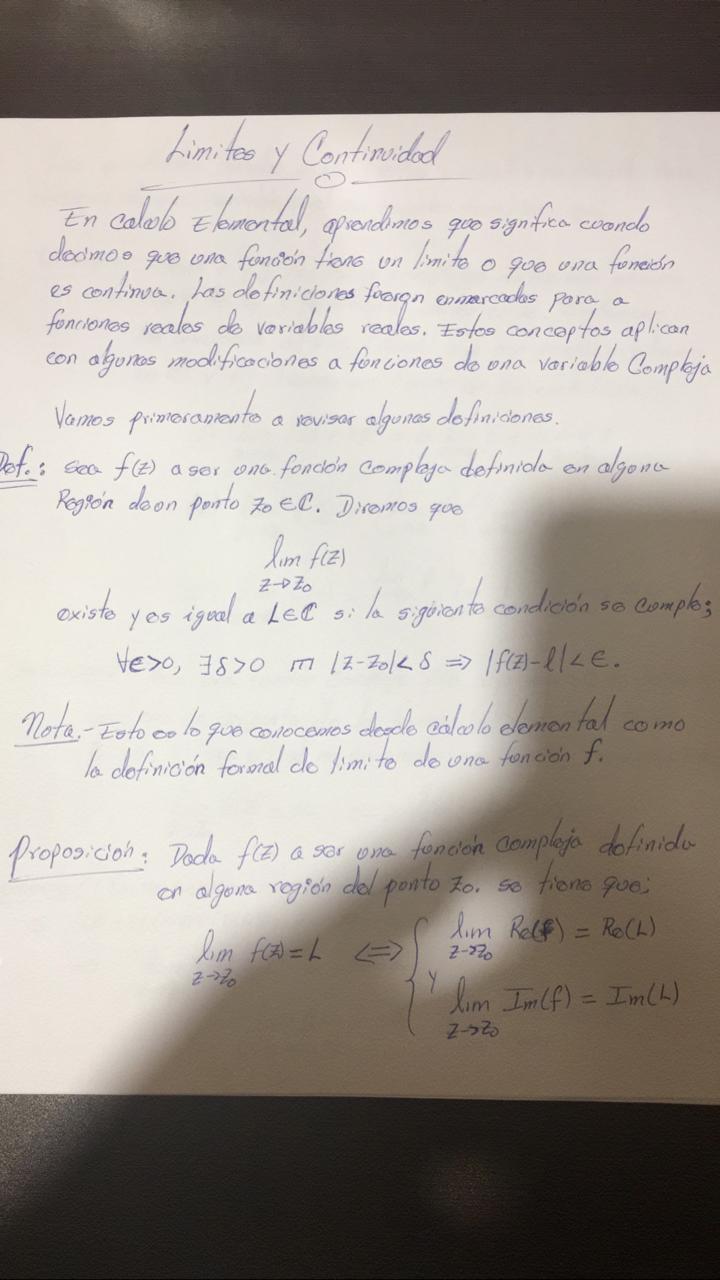 Limites y Continuidad
En calculo Elemental, aprendimos que significa cuando
decimos que una función tiene un limite o que una función
es continua. Las definiciones fueron enmarcadas para a
funciones reales de variables reales. Estos conceptos aplican
con algunas modificaciones a funciones de una variable Compleja
Vamos primeramente a revisar algunas definiciones.
Def.: Sea f(z) a ser una función Compleja definida en alguna
Región de un punto z₀ ∈ ℂ. Diremos que
lim f(z)
z→z₀
existe y es igual a L∈ℂ si la siguiente condición se cumple;
∀ϵ>0, ∃δ>0 m |z-z₀|<δ ⇒ |f(z)-l|<ϵ.
Nota.- Esto es lo que conocemos desde cálculo elemental como
la definición formal de limite de una función f.
Proposición: Dada f(z) a ser una función compleja definida
en alguna región del punto z₀. se tiene que;
lim f(z)=L ⇔ { lim Re(f) = Re(L)
z→z₀ z→z₀
y lim Im(f) = Im(L)
z→z₀